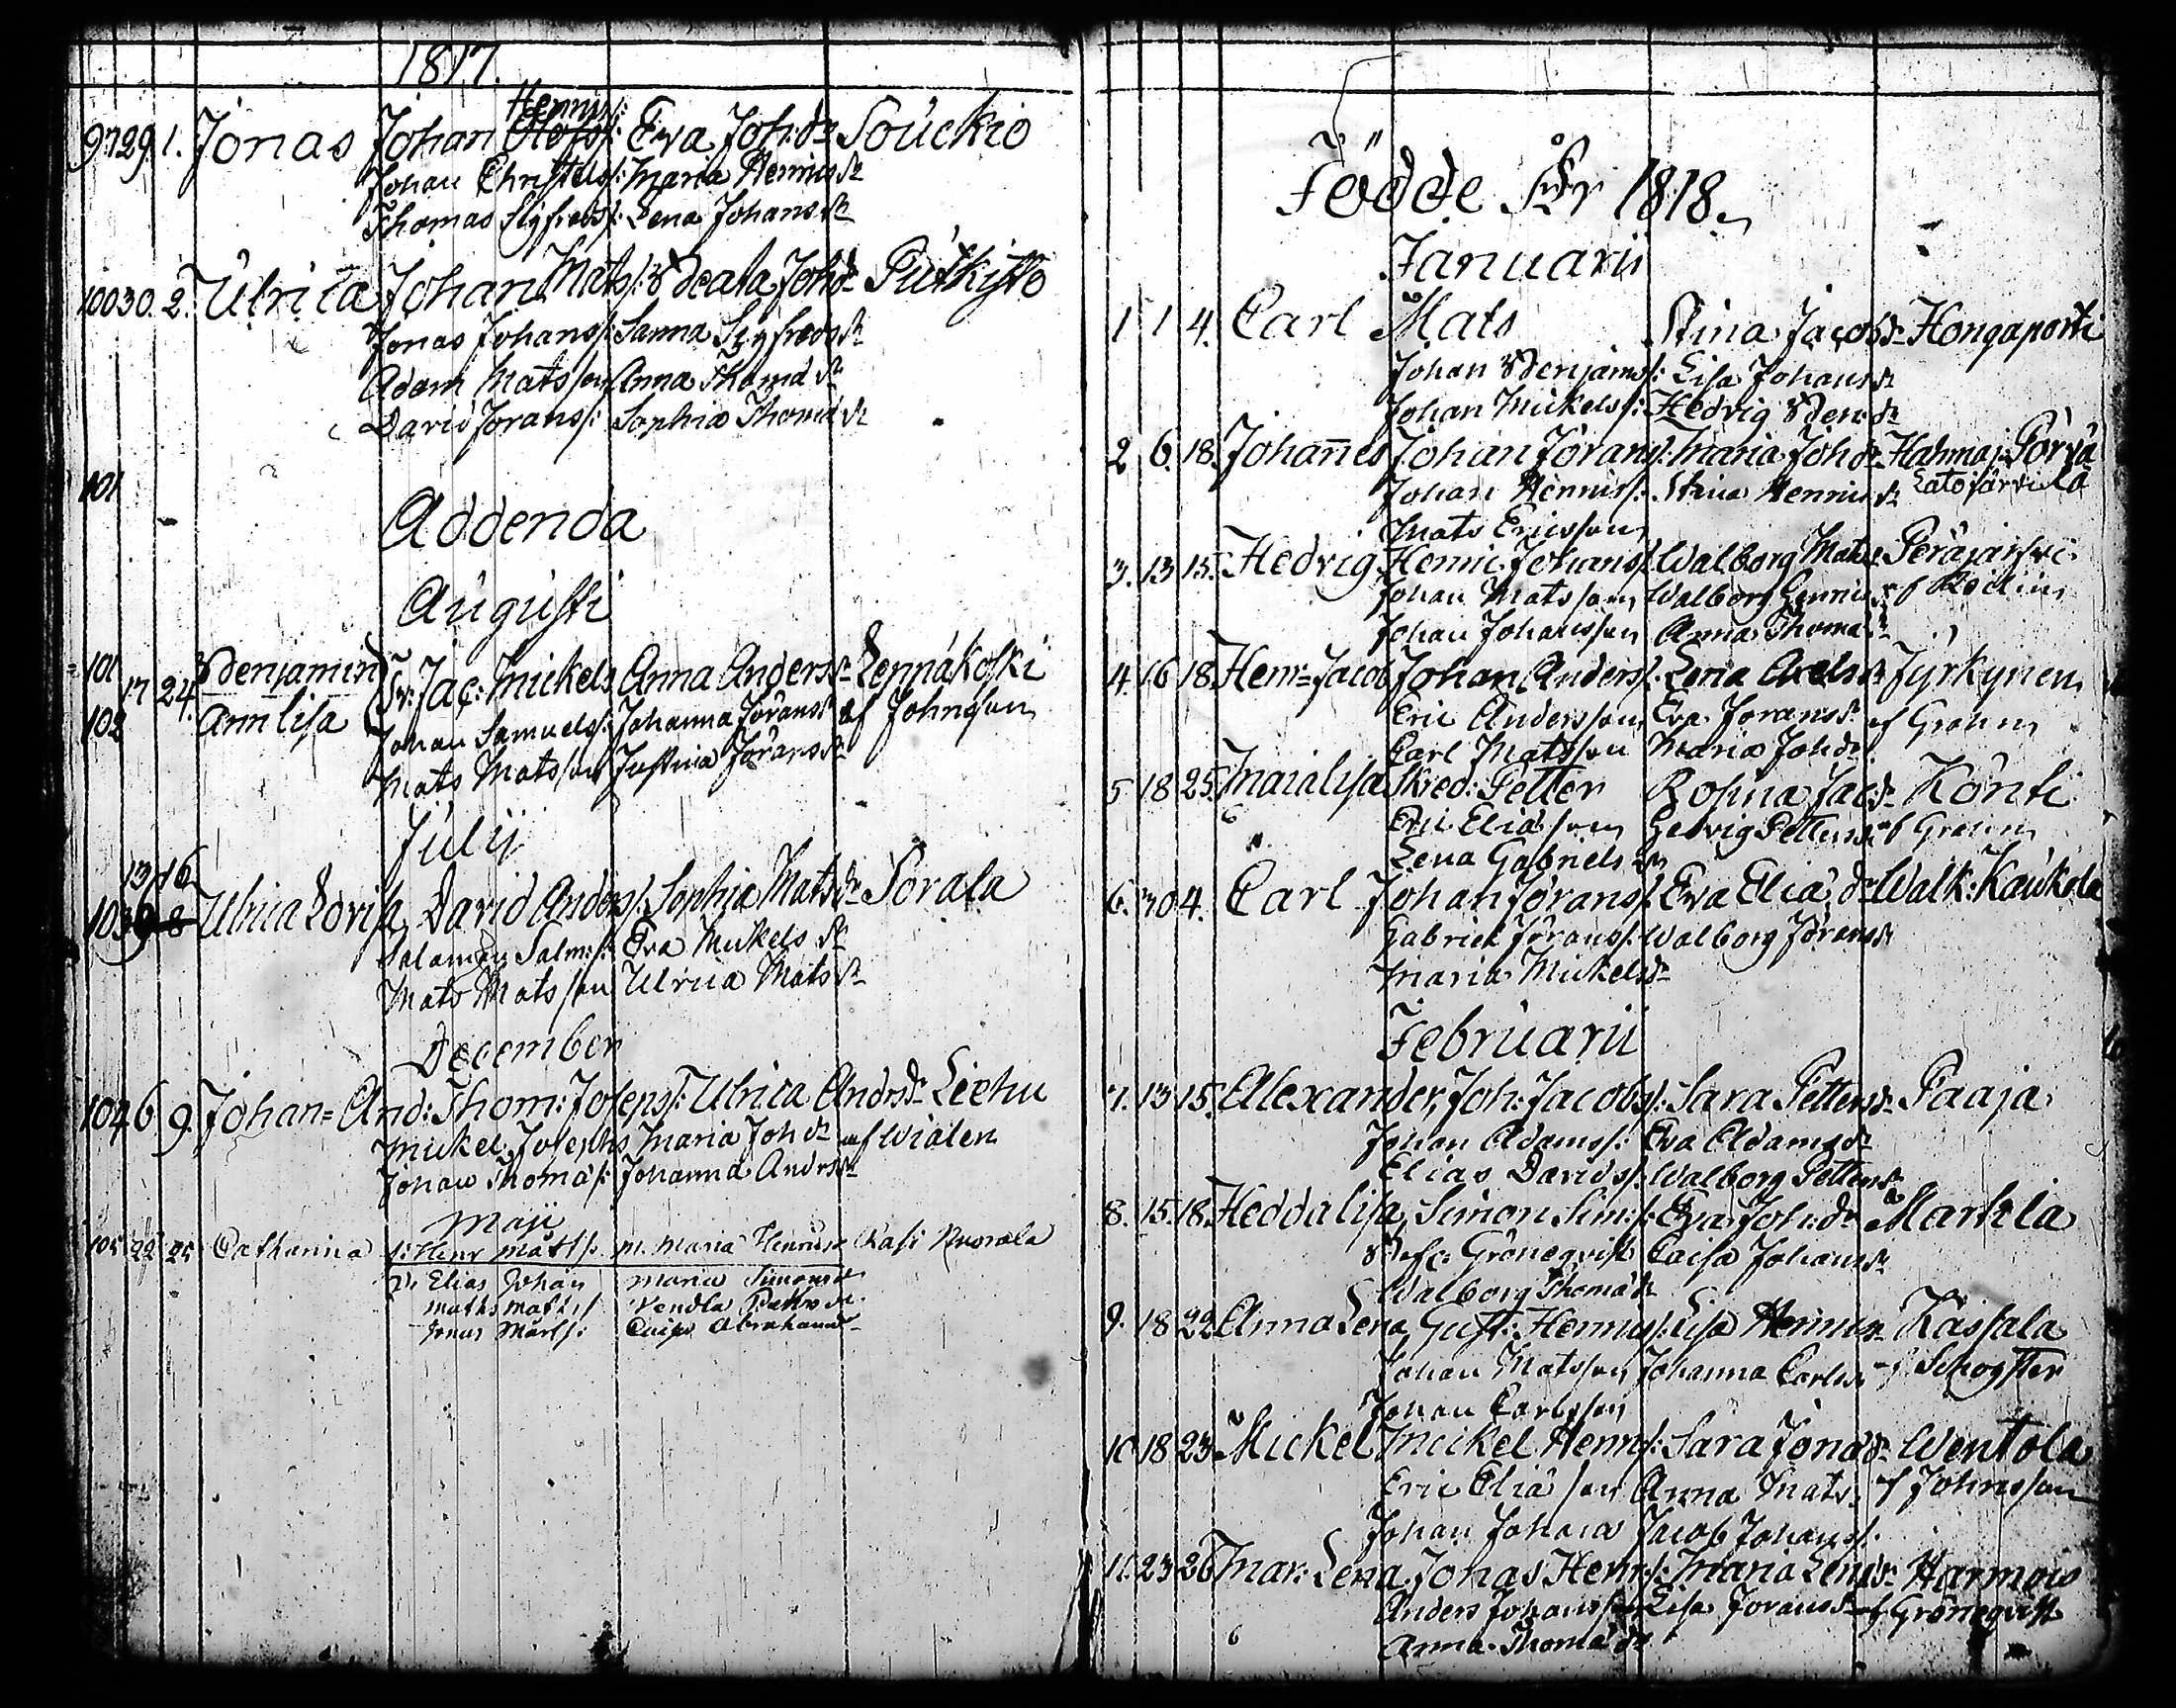 1817.
Henrics:
97 29. 1. Jonas Johan Olofs: Eva Joh: dr Souckio
Johan Christers: Maria Henrics dr
Thomas Sigfreds: Lena Johans dr
100 30. 2. Ulrica Johan Mats: Beata Joh dr Putkisto
Jonas Johans: Sanna Sigfreds dr
Adam Matsson Anna Thomæ dr
David Jörans: Sophia Thomæ dr
101
Addenda
Augusti
101 17 24. Benjamin Jac: Mickels Anna Anders dr Lennäkoski
102 Annlisa Johan Samuels: Johanna Jörans dr af Johnsson
Mats Matsson Justina Jörans dr
Julij
13 16
103 9 8 Ulrica Lovisa David Anders: Sophia Mats dr Sorala
Salomon Salom: Eva Mickels dr
Mats Matsson Ulrica Mats dr
December
104 6 9. Johan= And: Thom: Joseps: Ulrica Andrs dr Liehu
Mickel Josephs Maria Joh dr af Wialen
Johan Thomæs: Johanna Andrs dr
Maji
105 22 25 Catharina Henr Matts. M. Maria Henrics
Elias Johan Maria Simons dr
Maths Maths Vendla
Jonas Matts: Caisa Abrahams
Födde År 1818.
Januarii
1 1 4. Carl Mats Stina Jacobs dr Hongaporti
Johan Benjams: Lisa Johans dr
Johan Mickels: Hedvig Ben dr
2 6. 18. Johannes Johan Jörans: Maria Joh dr Hahmaj: Pörjä
Johan Henrics: Stina Henrics dr
Mats Ericsson
3. 13 15. Hedvig Henric Johans: Walborg Mats Peräjärfvi
Johan Matsson Walborg Henrics af
Johan Johansson Anna Thomæ dr
4. 16 18. Henr= Jacob Johan Anders: Lena Axels dr Jyrkynen
Eric Andersson Eva Jörans dr af Grahn
Carl Matsson Maria Joh dr
5 18 25. Maialisa Skred: Petter Rosina Jac dr Könti
Eric Eliæsson Hedvig Petters dr af Grahn
Lena Gabriels dr
6. 30 4. Carl Johan Jörans: Eva Eliæ dr Walk: Kaukola
Gabriel Jörans: Walborg Jörans dr
Maria Mickels dr
Februarii
7. 13 15. Alexander, Joh: Jacobs: Sara Petters dr Paaja
Johan Adams: Eva Adams dr
Elias Davids: Walborg Petters dr
8. 15. 18. Heddalisa, Simon Sim: Eva Joh: dr Markila
Grönqvist Caisa Johans dr
Walborg Thomæ dr
9. 18 22 Anna Lena, Gust: Henrics: Lisa Henrics dr Kassala
Johan Matsson Johanna Carls dr
Johan Carlsson
10 18 23 Mickel Mickel Henr: Sara Jonæ dr Wentola
Eric Eliæsson Anna Mats. af Johnsson
Johan Johans Jacob Johans:
11. 23 26 Mar: Lena Jonas Henr: Maria Henr dr Harmois
Anders Johansson Lisa Jörans dr af Grönqvist
Anna Thomæ dr